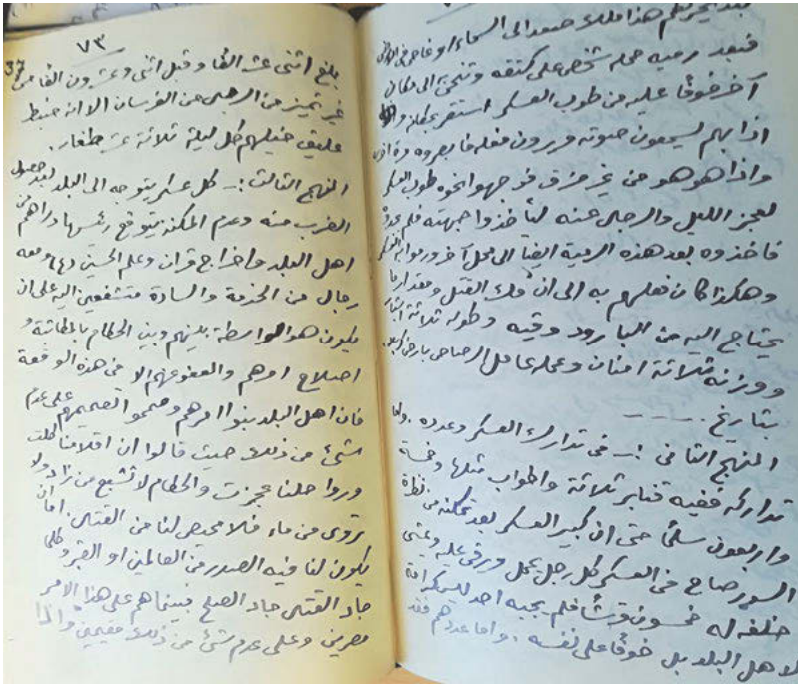 بعد بخبرتهم هذا ملك صعد الى السماء او غاص في الارض
فبعد رميه حمله شخص على كتفه وتنحى الى مكان
آخر خوفًا عليه من طوب العسكر استقر بمكانه
اذا بهم يسمعون صوته ويرون فعله فابصروه مرة اخرى
واذا هو هو من غير فرق فوجهوا نحوه طوب العسكر
لعجز الليل والرجال عنه ليأخذوا جهته فلم
فاخذوه بعد هذه الرمية ايضًا الى محل آخر ورموا به العسكر
وهكذا كان فعلهم به الى ان فك القتل ومقدار ما
يحتاج اليه من البارود وقيه وطوله ثلاثة اشبار
ووزنه ثلاثة امنان وعمله عامل الرصاص بارض كربلا
بتاريخ
المنهج الثاني :- في تدارك العسكر وعدده . واما
تداركه ففيه قنابر ثلاثة واطواب مثلها وخمسة
واربعون سلمًا حتى ان كبير العسكر بعد تمكنه من نظرة
السور صاح في العسكر كل رجل يحمل ويرقى عليه ويمشي
خلفه له خمسون قرشًا فلم يجبه احد للكرامة
لاهل البلد بل خوفًا على نفسه . واما عددهم فقد
٧٣
37
بلغ اثنى عشر الفًا وقيل اثنى وعشرون الفًا من
غير تميز من الرجال من الفرسان الا انه ضبط
عليق خيلهم كل ليلة ثلاثة عشر طغار .
المنهج الثالث :- كل عسكر يتوجه الى البلد لبعد حصول
القرب منه وعدم المكنة يتوقع رئيسها مراهم من
اهل البلد واخراج قران وعلم الحسين (ع) ومعه
رجال من الخدمة والسادة متشفعين اليه على ان
يكون هو الواسطة بينهم وبين الحطام بالمطانتة و
اصلاح امرهم والعفو عنهم الا في هذه الوقعة
فان اهل البلد بنوا امرهم وصمموا تصميمهم على عدم
شئ من ذلك حيث قالوا ان اقلامنا كلت
وروا حلنا عجزت والحطام لا تشبع من زاد ولا
تروى من ماء فلا محيص لنا من القتال . اما ان
يكون لنا فيه الصدر من العالمين او القبر وكلما
جاد القتال جاد الصلح فبينما هم على هذا الامر
مصرين وعلى عدم شئ من ذلك مقيمين واذا